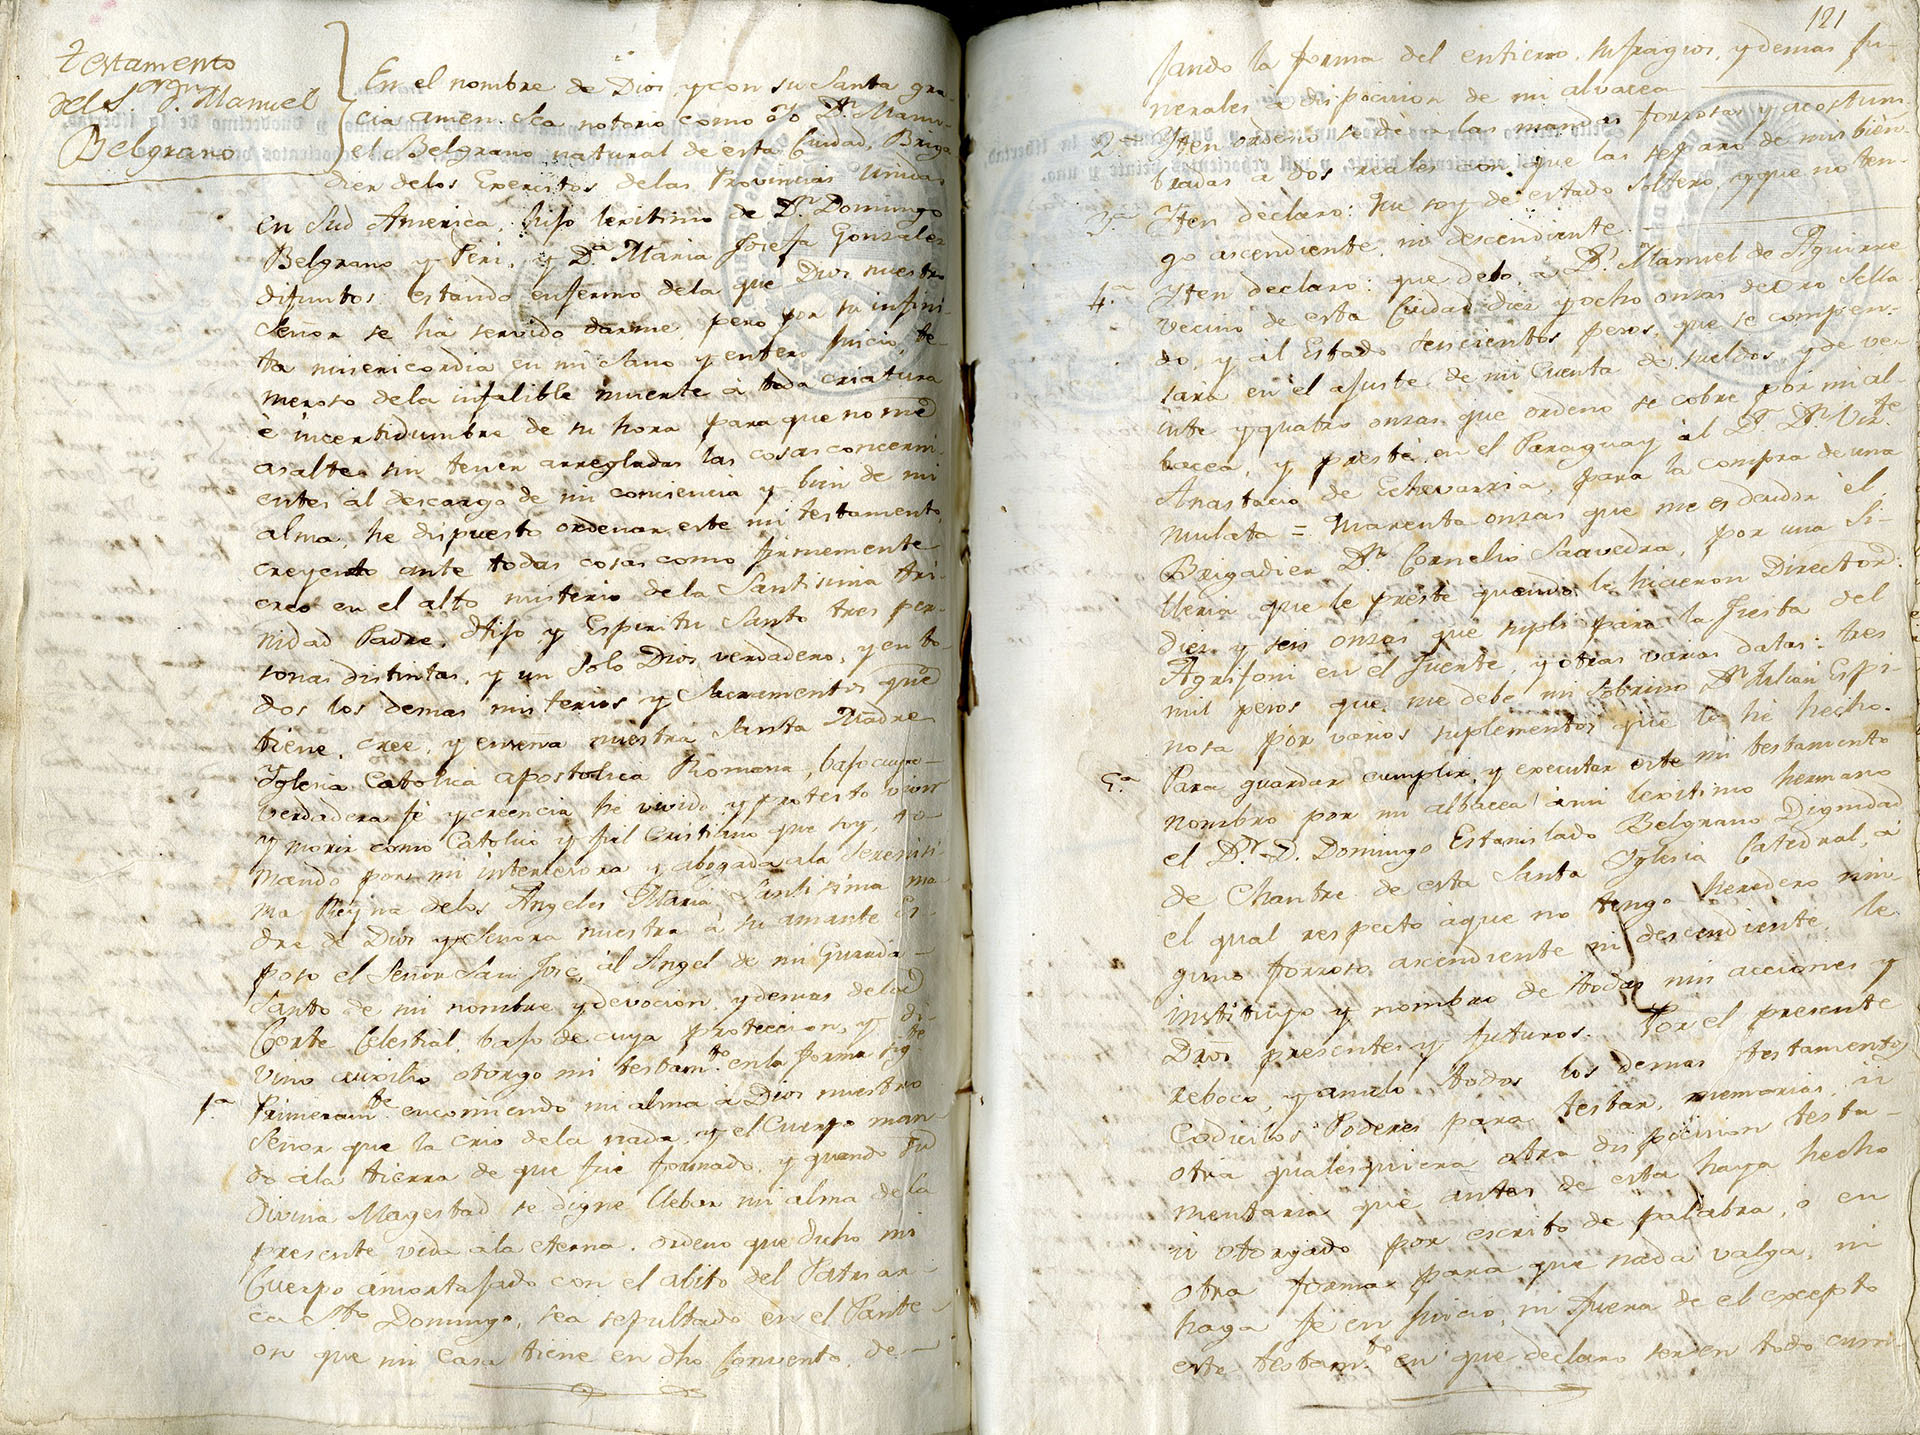 Testamento
del S.or Gral D. Manuel
Belgrano
En el nombre de Dios y con su Santa gra-
cia amen. Sea notorio como yo D.n Manu-
el Belgrano, natural de esta Ciudad, Briga
dier delos Exercitos delas Provincias Unidas
en Sud America, hijo lexitimo de D.n Domingo
Belgrano y Peri, y D.a Maria Josefa Gonzales
difuntos: estando enfermo dela que Dios nuestro
Señor se ha servido darme, pero por su infini-
ta misericordia en mi sano y entero Juicio, te-
meroso dela infalible muerte à toda criatura
è incertidumbre de su hora para que no me
asalte sin tener arregladas las cosas concerni-
entes al descargo de mi conciencia y bien de mi
alma, he dispuesto ordenar este mi testamento,
creyendo ante todas cosas como firmemente
creo en el alto misterio dela Santisima Tri-
nidad Padre, Hijo y Espiritu Santo tres per-
sonas distintas, y un solo Dios verdadero, y en to-
dos los demas misterios y Sacramentos que
tiene, cree, y enseña nuestra Santa Madre
Yglesia Catolica apostolica Romana, bajo cuya
verdadera fé y creencia he vivido, y protesto vivir
y morir como Catolico y fiel Cristiano que soy, to-
mando por mi intersesora y abogada ala Serenisi-
ma Reyna delos Angeles Maria Santisima ma-
dre de Dios y Señora nuestra à su amante Es-
poso el Señor San José, al Angel de mi Guarda
Santo de mi nombre y devocion, y demas dela
Corte Celestial, bajo de cuya proteccion, y di-
vino auxilio otorgo mi testam.to en la forma sig.te
1.a Primeram.te encomiendo mi alma à Dios nuestro
Señor que la crio dela nada, y el Cuerpo man-
do ala tierra de que fue formado, y quando su
Divina Magestad se digne llebar mi alma de la
presente vida ala eterna, ordeno que dicho mi
Cuerpo amortajado con el abito del Patriar-
ca S.to Domingo, sea sepultado en el Pante
on que mi casa tiene en dho Convento, de-
121
jando la forma del entierro, sufragios, y demas fu-
nerales à disposicion de mi alvacea
2.a Yten ordeno se dè a las mandas forrosas y acostum-
bradas a dos reales con que las separo de mis bien.s
3.a Yten declaro: Que soy de estado soltero, y que no ten-
go ascendiente, ni descendiente.
4.a Yten declaro: que debo à D.n Manuel de Aguirre
vecino de esta Ciudad diez y ocho onzas de oro sella
do, y al Estado tescientos pesos, que se compen-
sara en el ajuste de mi Cuenta de sueldos, y de ve
inte y quatro onzas que ordeno se cobre por mi al-
bacea, y presté en el Paraguay al D.r D.n Vic.te
Anastacio de Echevarria, para la compra de una
mulata = Quarenta onzas que me es deudor el
Brigadier D.n Cornelio Saavedra, por una Si-
lleria que le presté quando le hicieron Director:
diez y seis onzas que supli para la Fiesta del
Agrifoni en el Fuerte, y otras varias datas: tres
mil pesos que me debe mi sobrino D.n Julian Espi-
nosa por varios suplementos que le he hecho.
5.a Para guardar cumplir, y executar este mi testamento
nombro por mi albacea à mi lexitimo hermano
el D.r D. Domingo Estanislado Belgrano Dignidad
de Chantre de esta Santa Yglesia Catedral, à
el qual respecto àque no tengo heredero nin
guno forroso ascendiente ni descendiente, le
instituyo y nombro de todas mis acciones y
Dros presentes y futuros. Por el presente
reboco, y anulo todos los demas testamentos
Codicilos Poderes para testar, memorias, ù
otra qualesquiera otra disposicion testa-
mentaria que antes de esta haya hecho
ù otorgado por escrito de palabra, o en
otra forma para que nada valga, ni
haga fé en Juicio, ni fuera de el excepto
este testam.to en que declaro ser en todo cum-